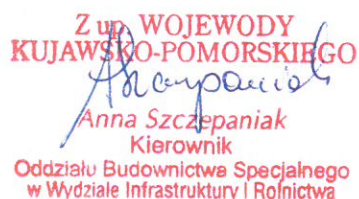 Z up. WOJEWODY
KUJAWSKO-POMORSKIEGO
ASzczepaniak
Anna Szczepaniak
Kierownik
Oddziału Budownictwa Specjalnego
w Wydziale Infrastruktury i Rolnictwa